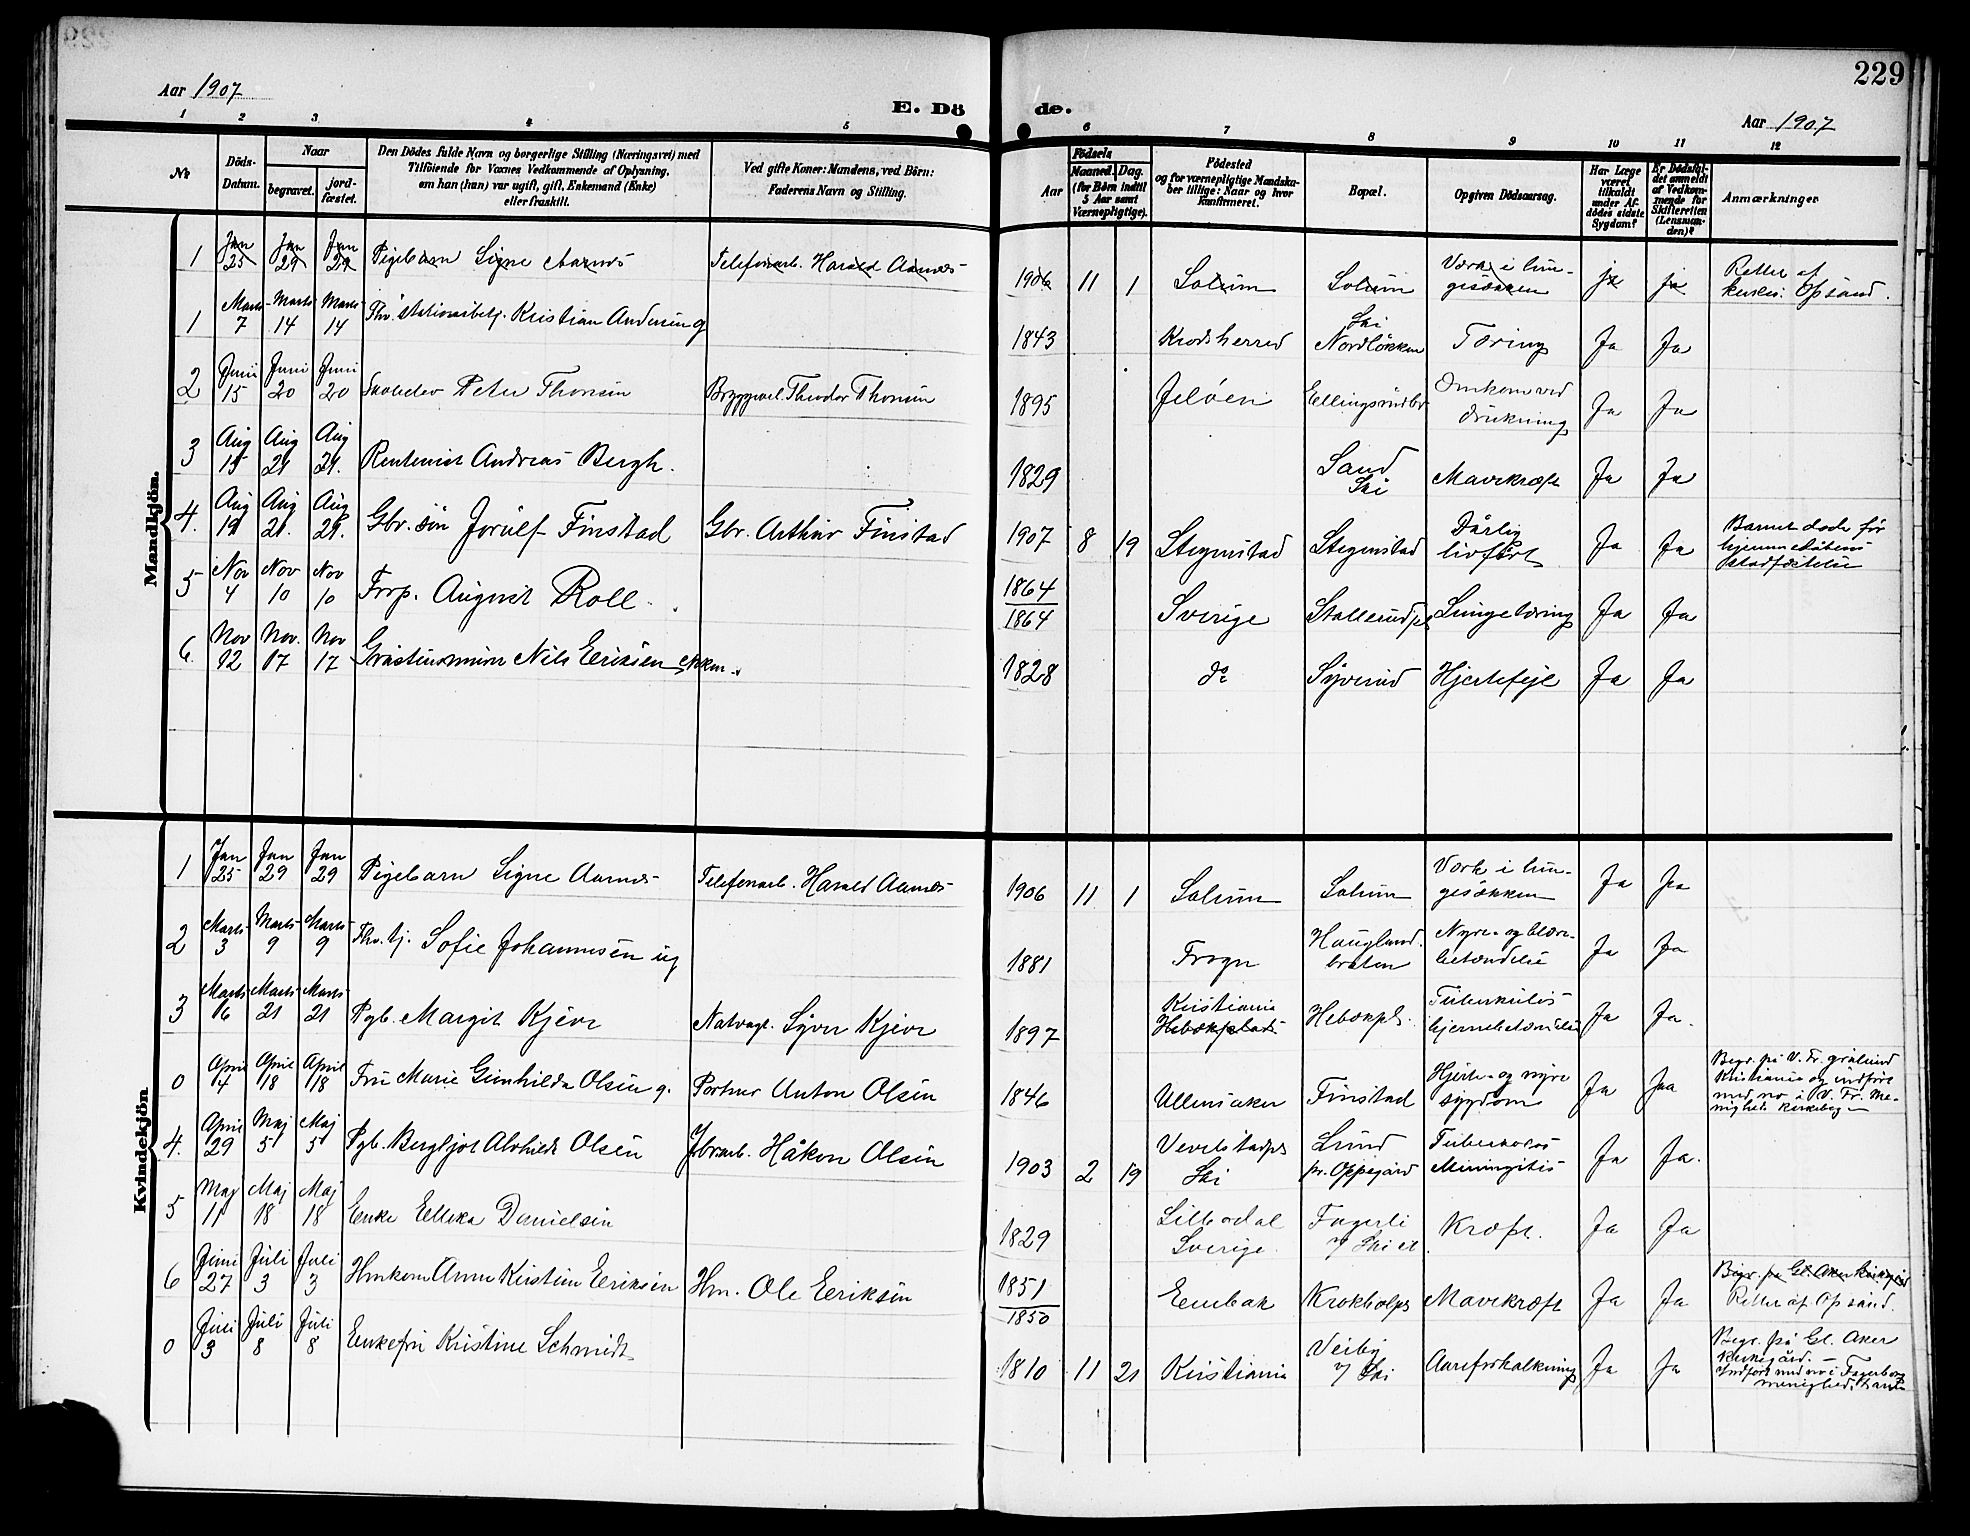 229
Aar 1907
E. Dö
de.
Aar 1907
1 2 3 4 5 6 7 8 9 10 11 12
№
Döds-
Datum.
Naar
begravet.
jord-
fæstet.
Den Dödes fulde Navn og borgerlige Stilling (Næringsvei) med
Tilföiende for Voxnes Vedkommende af Oplysning,
om han (hun) var ugift, gift, Enkemand (Enke)
eller fraskilt.
Ved gifte Koner: Mandens, ved Börn:
Faderens Navn og Stilling.
Födsels
Aar
Maaned. Dag.
(for Börn indtil
5 Aar samt
Værnepligtige).
Födested
og for værnepligtige Mandska-
ber tillige: Naar og hvor
konfirmeret.
Bopæl.
Opgiven Dödsaarsag.
Har Læge
været
tilkaldt
under Af-
dödes sidste
Sygdom?
Er Dödsfal-
det anmeldt
af Vedkom-
mende for
Skifteretten
(Lensman-
den)?
Anmærkninger
Mandkjön.
1 Jan 25 Jan 29 Jan 29 Pigebarn Signe Aarnes Telefonarb. Harald Aarnes 1906 11 1 Solum Solum Værk i lun-
gesækken ja ja Rettet af
kirkes. Opsand.
1 Marts 7 Marts 14 Marts 14 Fhv. stationsbetj. Kristian Andersen g 1843 Krodsherred Ski
Nordløkken Tæring Ja Ja
2 Juni 15 Juni 20 Juni 20 Skoleelev Peter Thorsen Bryggearb. Theodor Thorsen 1895 Jeløen Ellingsrudbr Omkom ved
drukning Ja Ja
3 Aug 15 Aug 21 Aug 21. Rentenist Andreas Bergh. 1829 Sand
Ski Mavekræft Ja Ja
4. Aug 19 Aug 21. Aug 21. Gbr. søn Jorulf Finstad Gbr. Arthur Finstad 1907 8 19 Stegenstad Stegenstad Dårlig
livført Ja Ja Barnet døde før
hjemmedåbens
stadfæstelse
5 Nov 4 Nov 10 Nov 10 Forp. August Roll. 1864
1864 Sverige Stallerudpl Lungetæring Ja Ja
6. Nov 12 Nov. 17 Nov 17 Nils Eriksen enkm. 1828 do Syverud Hjertefejl Ja Ja
Kvindekjön
1 Jan 25 Jan 29 Jan 29 Pigebarn Signe Aarnes Telefonarb. Harald Aarnes 1906 11 1 Solum Solum Værk i lun-
gesækken Ja Ja
2 Marts 3 Marts 9 Marts 9 Fhv. tj. Sofie Johannesen ug 1881 Frogn Haugland.
braten Nyre- og blære-
betændelse Ja Ja
3 Marts 16 Marts 21 Marts 21 Pgb. Margit Kjevr Natvagt. Syver Kjevr 1897 Kristiania
Hebækplads Hebækpl. Tuberkuløs
hjernebetændelse Ja Ja.
0 April 14 April 18 April 18 Fru Marie Gunhilda Olsen g. Portner Anton Olsen 1846 Ullensaker Finstad Hjerte- og nyre
sygdom Ja Jaa Begr. på V. Fr. gravlund
Kristiania og indført
med no i V. Fr. Me-
nigheds kirkebog
4. April 29 Maj 5 Maj 5 Pgb. Bergljot Alvhilde Olsen Jbrarb. Håkon Olsen 1903 2 19 Vevelstadpl
Ski Lund
pr. Oppegård Tuberkuløs
Meningitis Ja Ja.
5 Maj 11 Maj 18 Maj 18 Enke Elleka Danielsen 1829 Lillesdal
Sverige. Fagerli
v/ Ski st. Kræft. Ja Ja
6 Juni 27 Juli 3 Juli 3 Hmkone Anne Kirstine Eriksen Hm. Ole Eriksen 1851
1850 Enebak Krokholpl Mavekræft Ja Ja Begr. på Gl. Aker kirkegård
Rettet af Opsand.
0 Juli 3 Juli 8 Juli 8 Enkefru Kristine Schmidt 1810 11 21 Kristiania Veiby
v/ Ski Aareforkalkning Ja Ja Begr. på Gl. Aker
Kirkegård. —
Indført med no i Fagerborg
menigheds